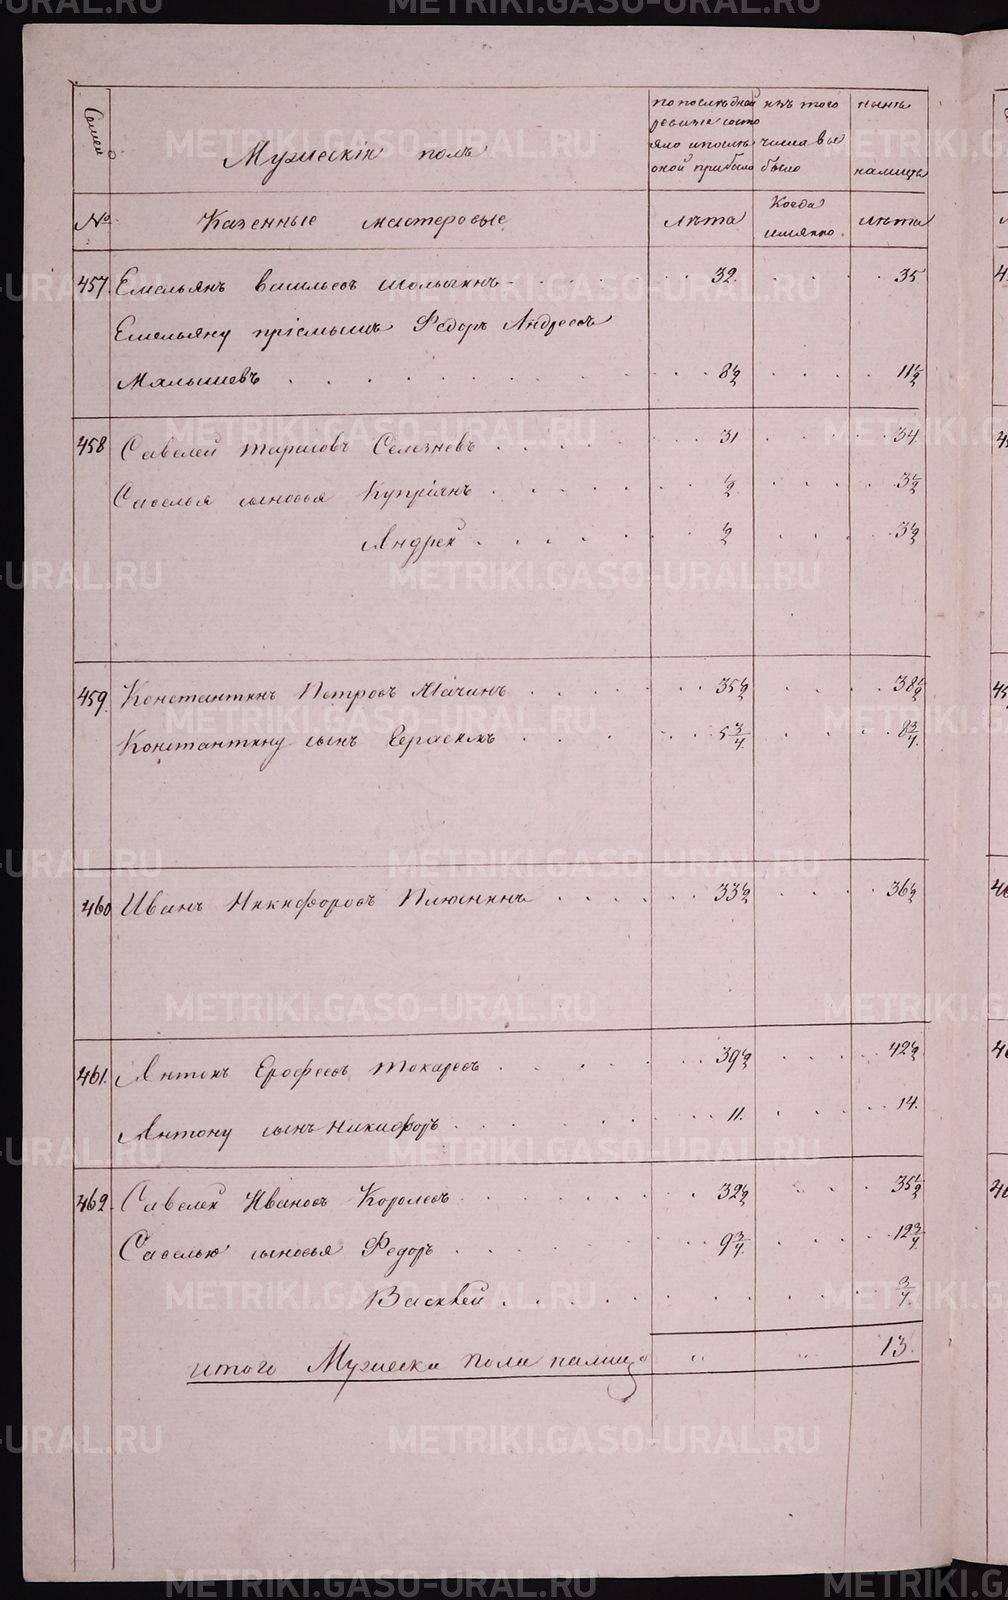 Семей
Мужескій полъ
по последней
ревизіи состо
яло и после
оной прибыло
изъ того
числа вы
было
ныне
налицо
№
Казенные мастеровые
лѣта
Когда
имянно.
лѣта
457. Емельянъ Васильевъ 32. 35
Емельяну пріемышъ Федоръ Андреевъ
Малышевъ 8½ 11½
458 Савелей Тарасовъ Селезневъ 31 34
Савелья сыновья Купріянъ ½ 3½
Андрей ½ 3½
459. Константинъ Петровъ Мачинъ 35½ 38½
Константину сынъ Герасимъ 5¾ 8¾
460 Иванъ Никифоровъ Плюснинъ 33½ 36½
461. Антонъ Ерофеевъ Токаревъ 39½ 42½
Антону сынъ Никифоръ 11. 14.
462. Савелей Ивановъ Королевъ 32½ 35½
Савелью сыновья Федоръ 9¾ 12¾
Василей ¾
итого Мужеска пола налицо " " 13.
METRIKI.GASO-URAL.RU